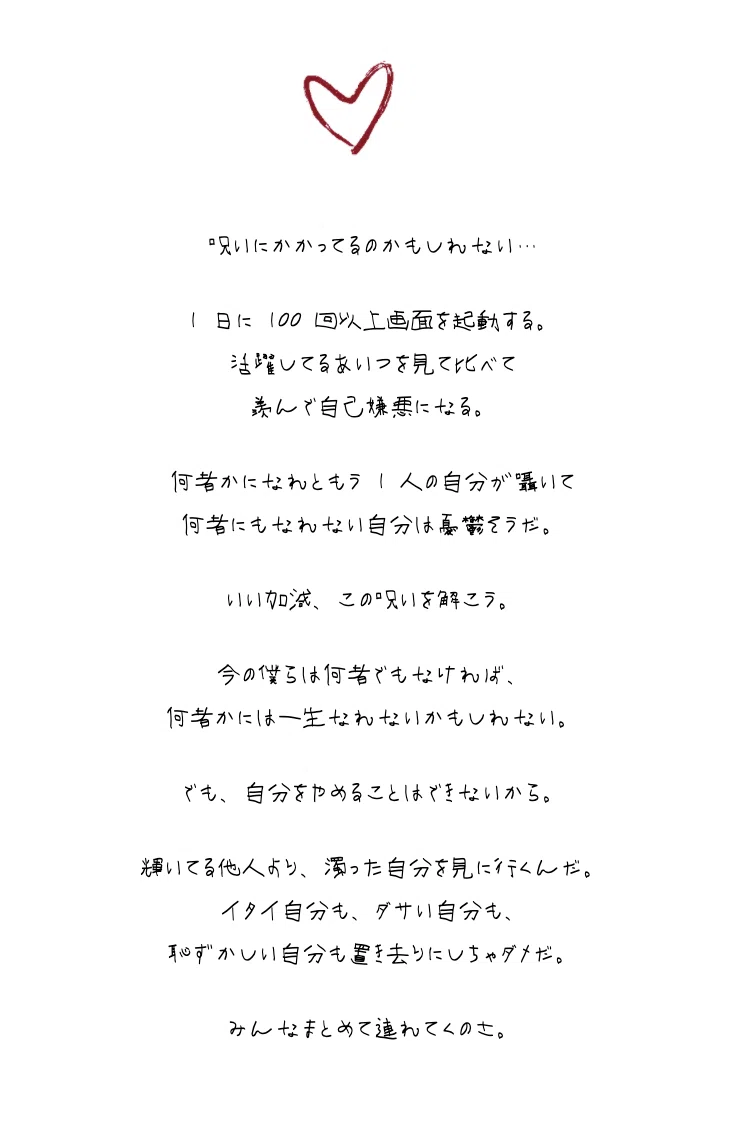 呪いにかかってるのかもしれない…
1日に100回以上画面を起動する。
活躍してるあいつを見て比べて
羨んで自己嫌悪になる。
何者かになれともう1人の自分が囁いて
何者にもなれない自分は憂鬱そうだ。
いい加減、この呪いを解こう。
今の僕らは何者でもなければ、
何者かには一生なれないかもしれない。
でも、自分をやめることはできないから。
輝いてる他人より、濁った自分を見に行くんだ。
イタイ自分も、ダサい自分も、
恥ずかしい自分も置き去りにしちゃダメだ。
みんなまとめて連れてくのさ。